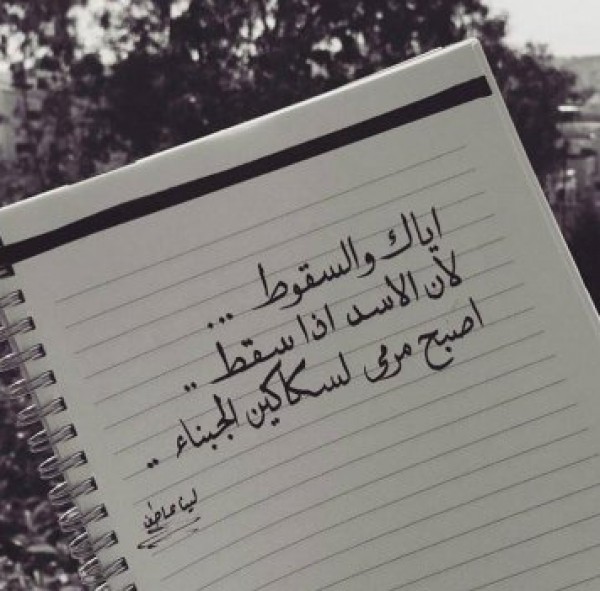 اياك والسقوط ...
لأن الاسد اذا سقط ..
اصبح مرمى لسكاكين الجبناء ..
لينا